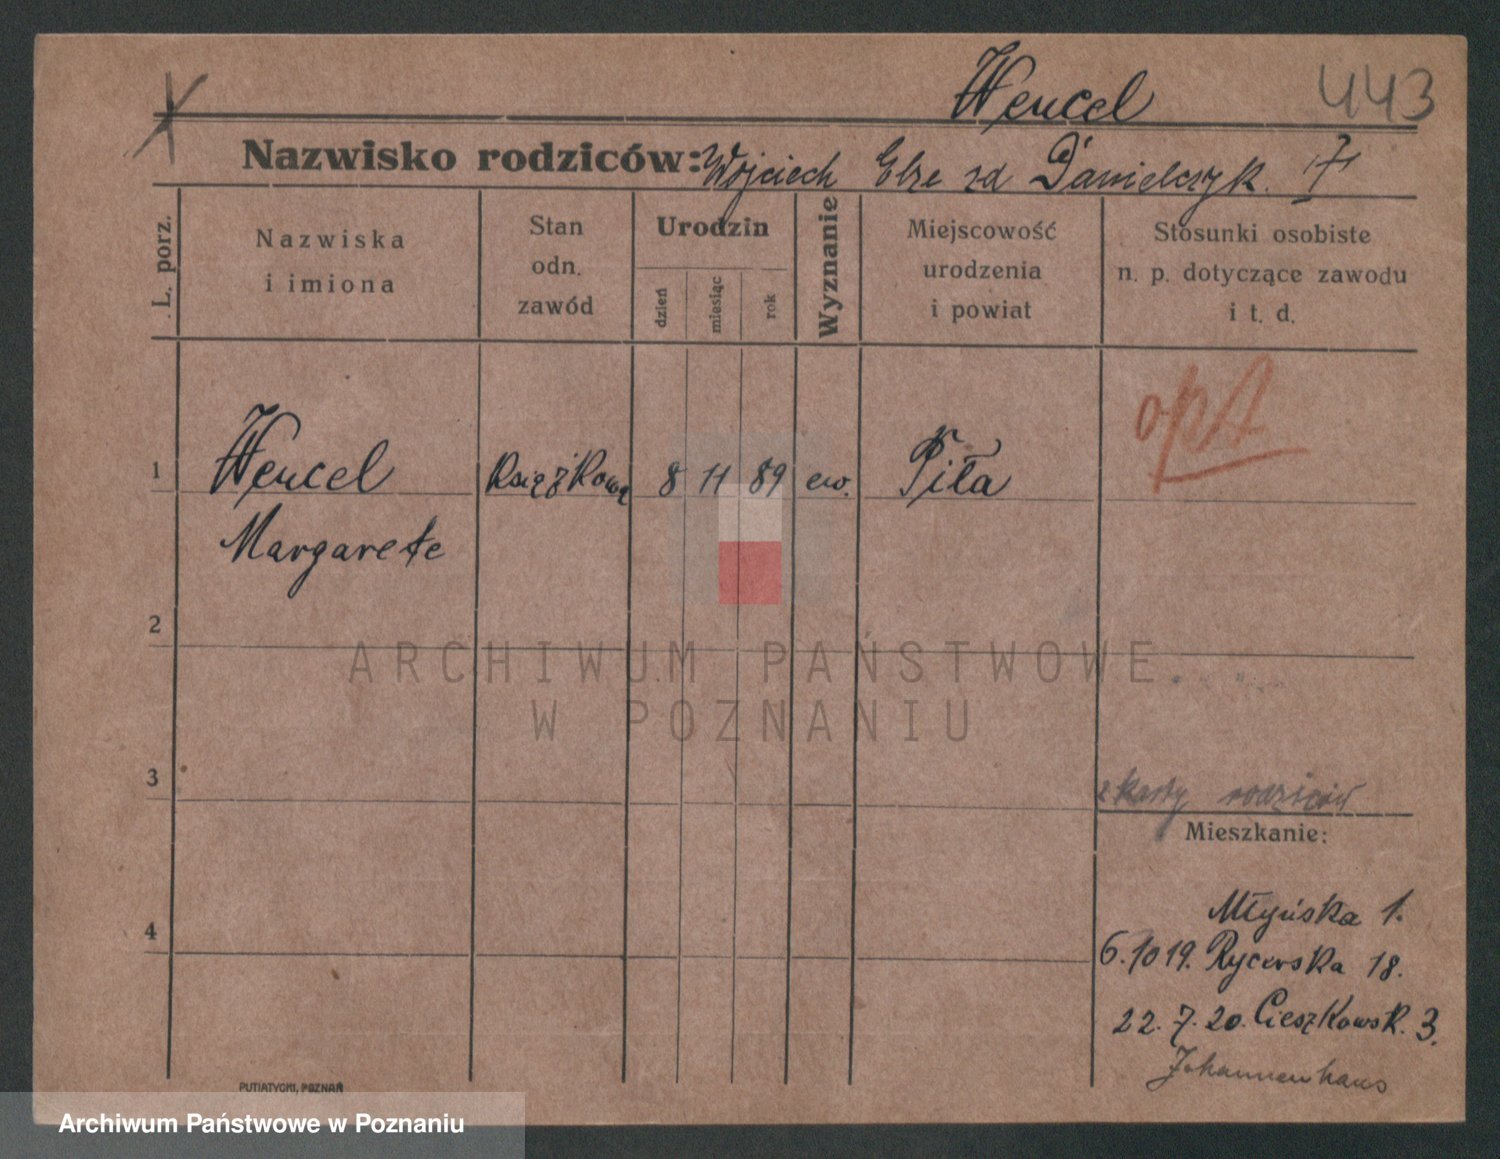 Wencel 443
Nazwisko rodziców: Wojciech Else zd Danielczyk.
L. porz.
Nazwiska
i imiona
Stan
odn.
zawód
Urodzin
dzień
miesiąc
rok
Wyznanie
Miejscowość
urodzenia
i powiat
Stosunki osobiste
n. p. dotyczące zawodu
i t. d.
opt
1 Wencel Książkowa 8 11 89 ew. Piła
Margarete
2
3
z karty rodziców
Mieszkanie:
4
Młyńska 1.
6.10 19. Rycerska 18.
22. 7. 20. Cieszkowsk. 3.
Johannenhaus
PUTIATYCKI, POZNAŃ
ARCHIWUM PAŃSTWOWE
W POZNANIU
Archiwum Państwowe w Poznaniu